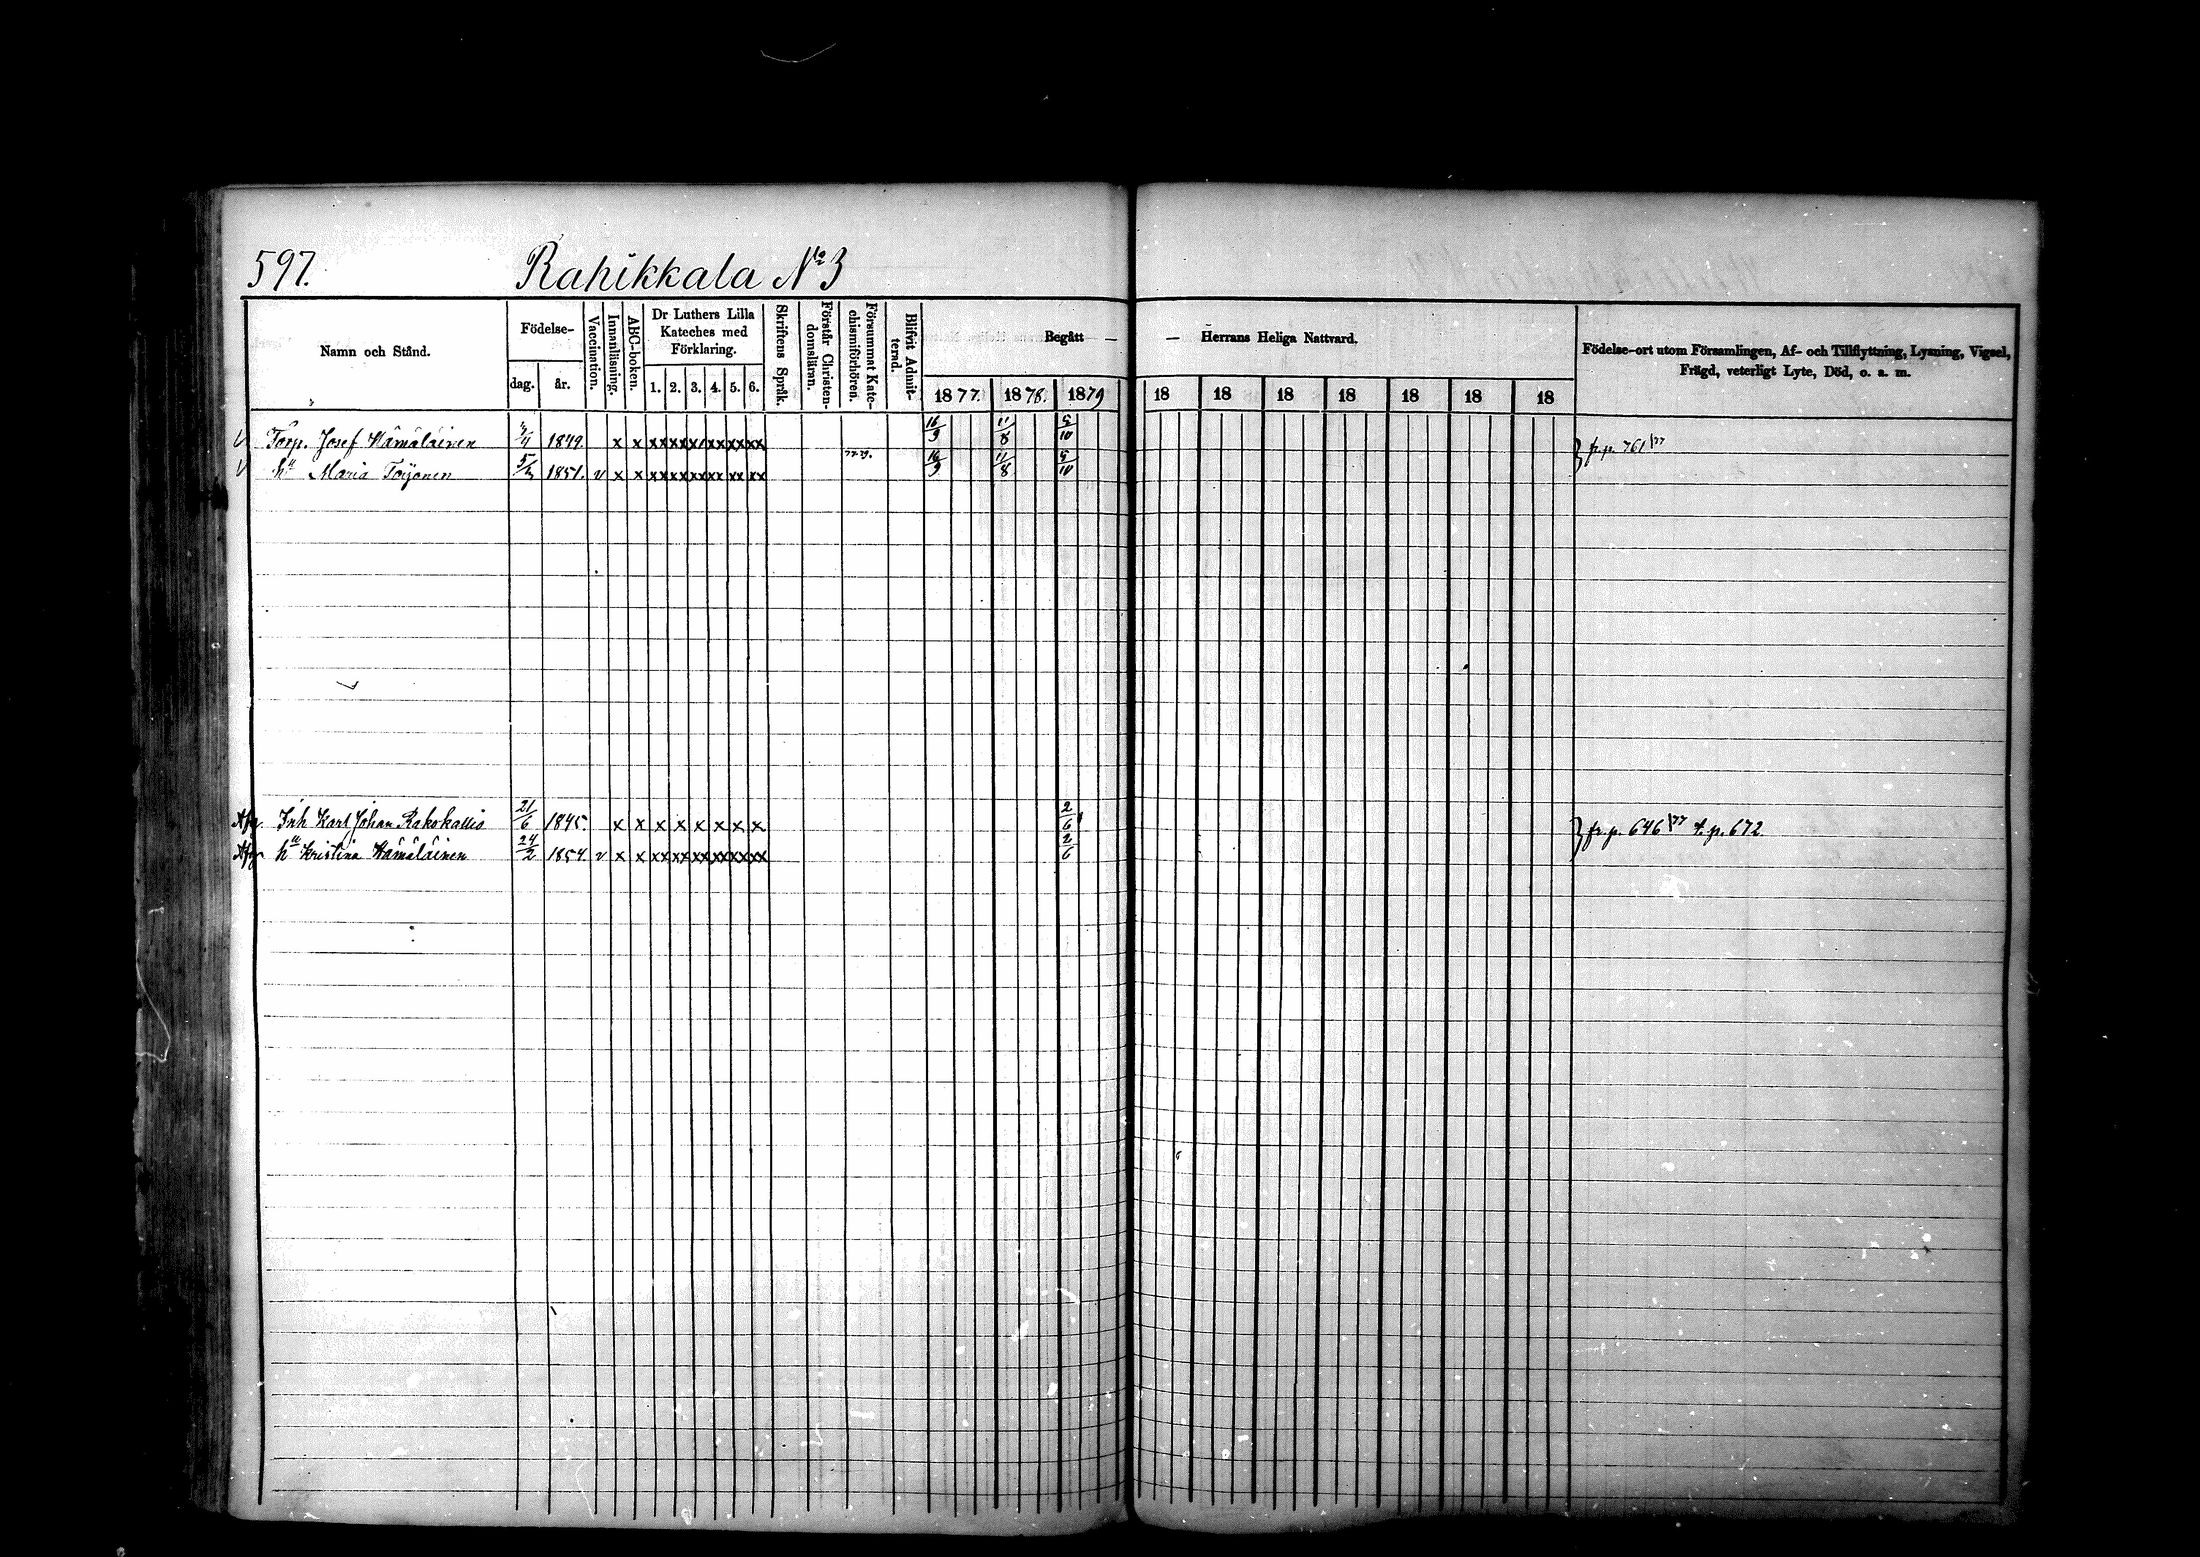 597. Rahikkala No 3
Namn och Stånd.
Födelse-
dag. år.
Vaccination.
Innanläsning.
ABC-boken.
Dr Luthers Lilla
Kateches med
Förklaring.
1. 2. 3. 4. 5. 6.
Skriftens Språk.
Förstår Christen-
domsläran.
Försummat Kate-
chismiförhören.
Blifvit Admit-
terad.
Begått — — Herrans Heliga Nattvard.
1877. 1878. 1879 18 18 18 18 18 18 18
Födelse-ort utom Församlingen, Af- och Tillflyttning, Lysning, Vigsel,
Frägd, veterligt Lyte, Död, o. a. m.
V Torp. Josef Hämäläinen 1849. x x xx xx x xx xx xx 16/9 11/8 5/10 } fr. p. 761/77
V hu Maria Toijonen 1851. v x x xx xx xx xx xx xx 77.79. 16/9 11/8 5/10
Inh Karl Johan Rakokallio 21/6 1845. x x x x x x x x 2/6 } fr. p. 646/77 t. p. 672
hu Kristina Hämäläinen 24/2 1854. v x x xx xx xx xx xx xx 2/6